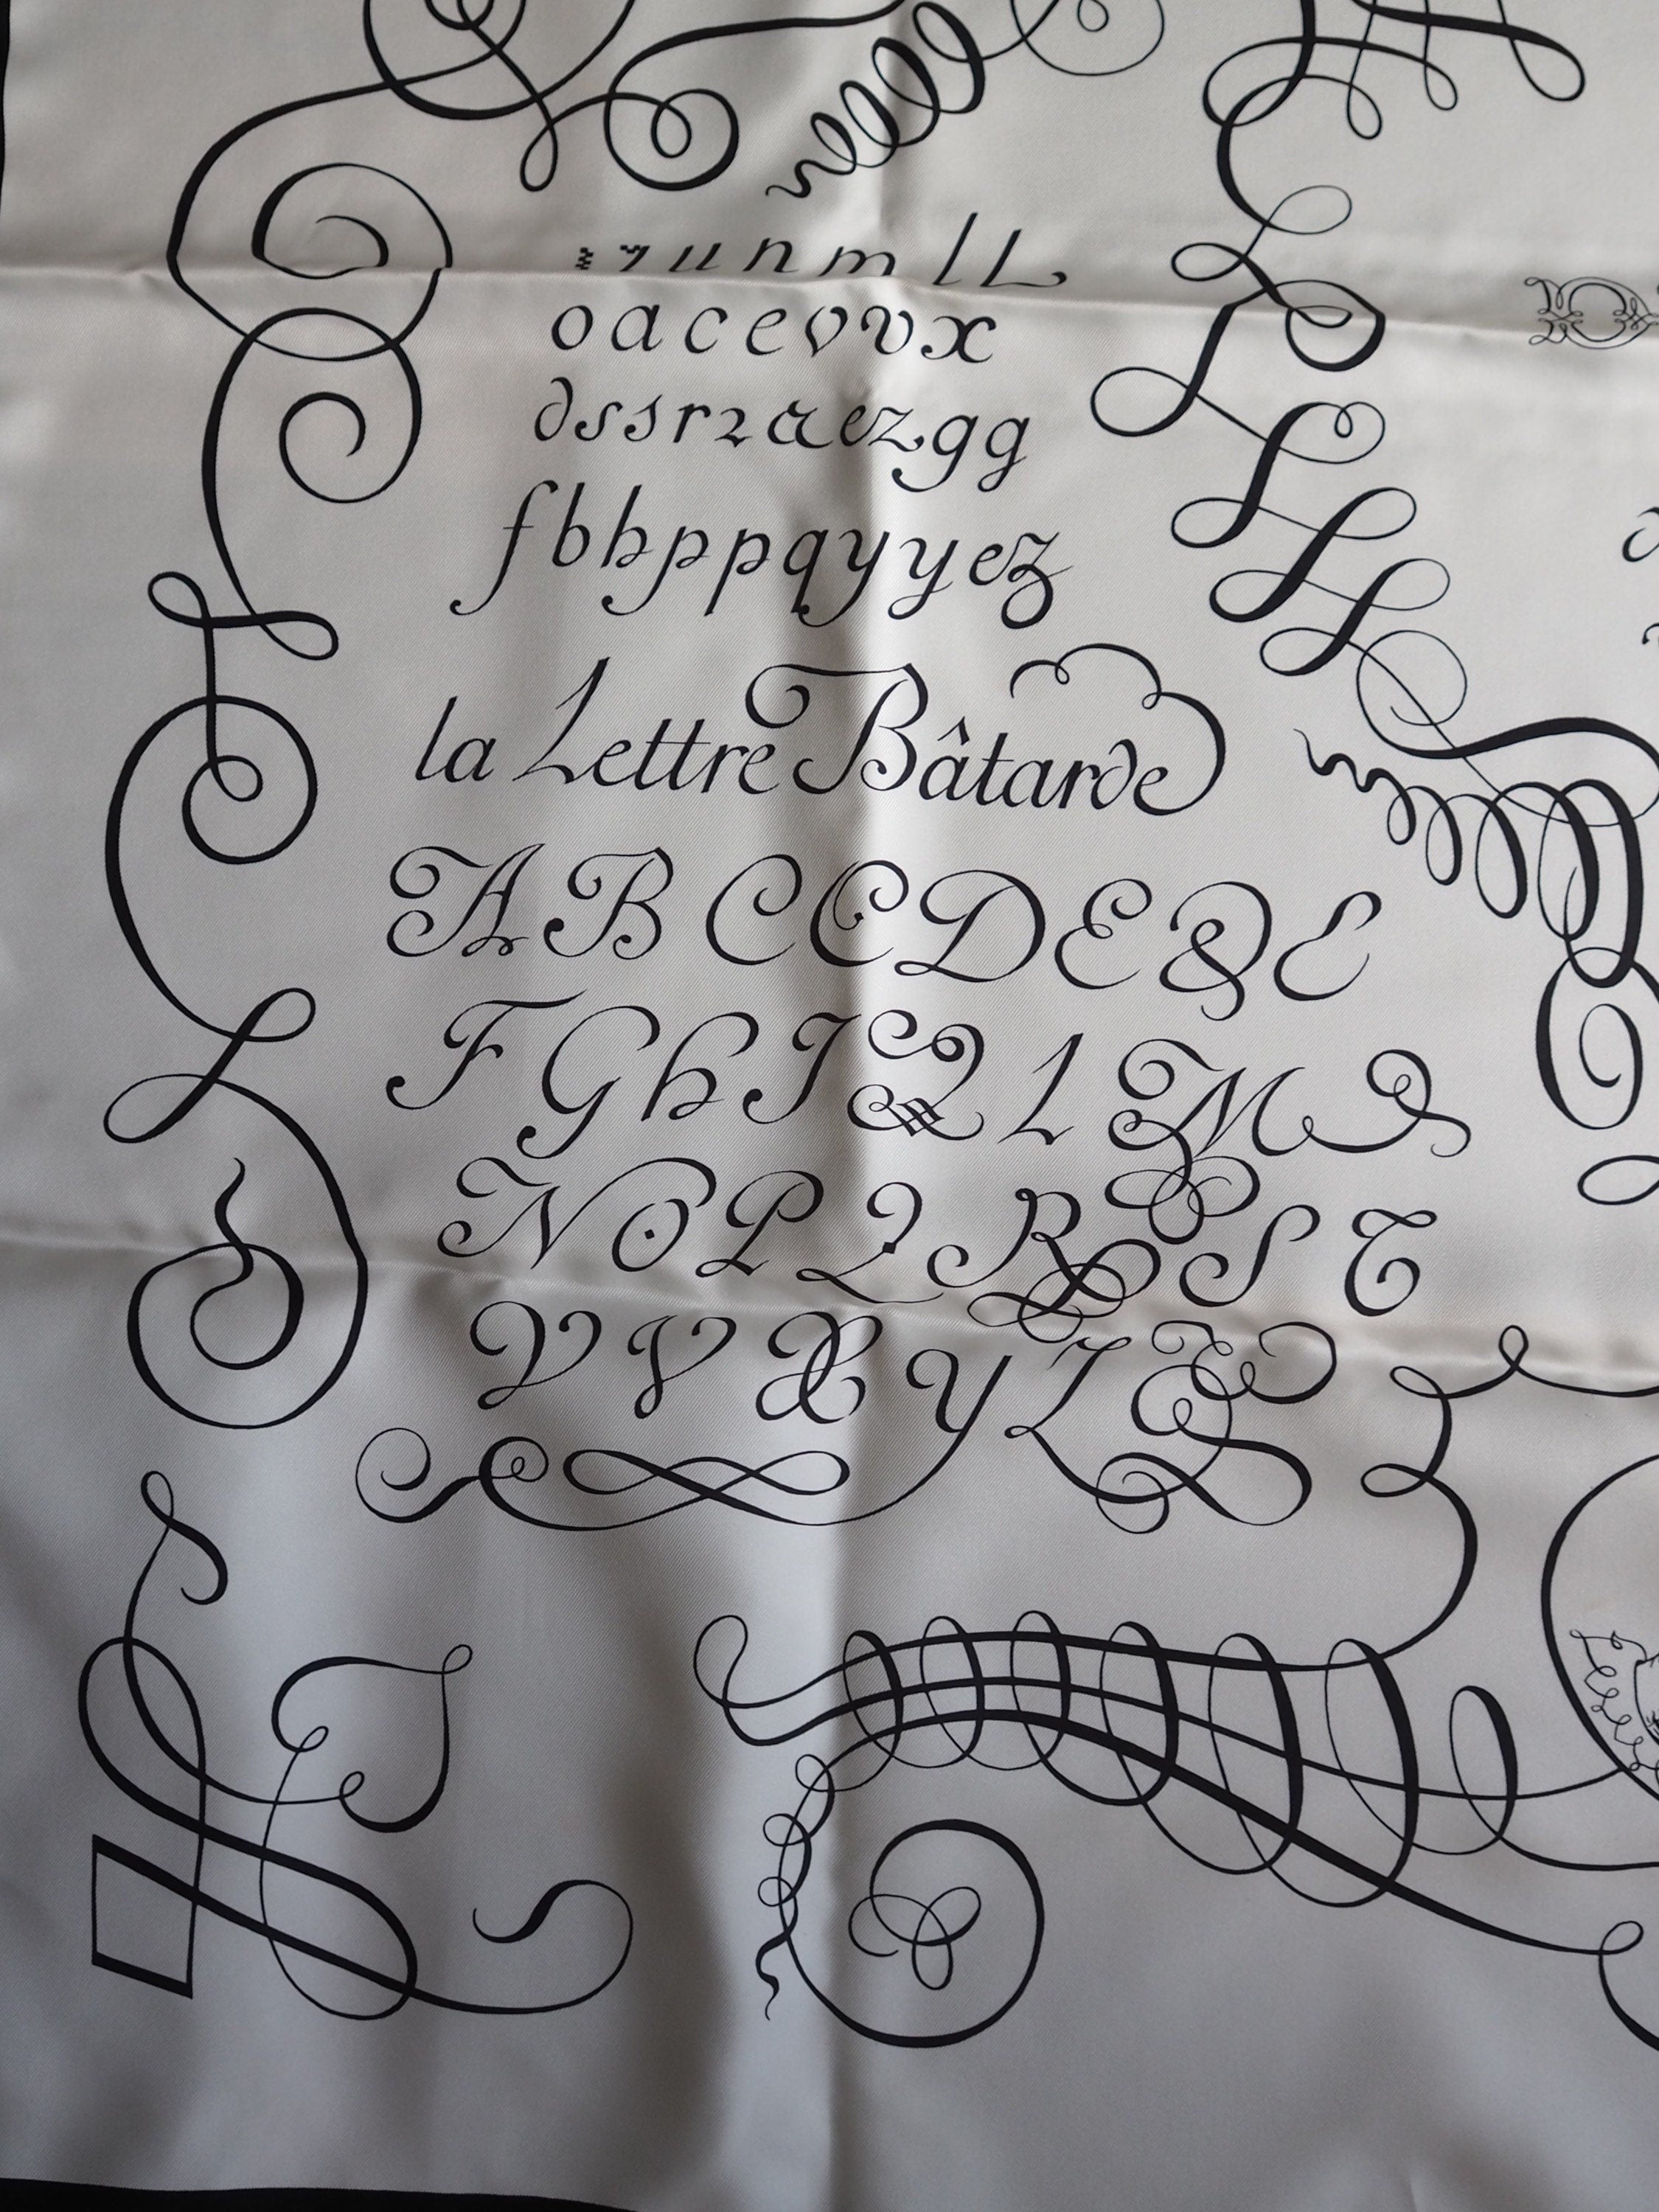 u n m l L
o a c e v v x
d s s r 2 a ez g g
f b h p p q y y ez
la Lettre Bâtarde
A B C C D E D E
F G h I L M
N O P Q R S T
V V X Y Z